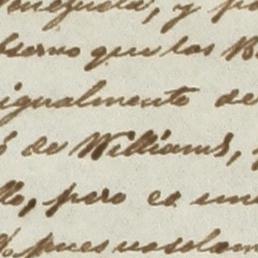 Venezuela, y p
bservo que los B
igualmente de
ó de Williams,
llo, pero es un
pues no solam